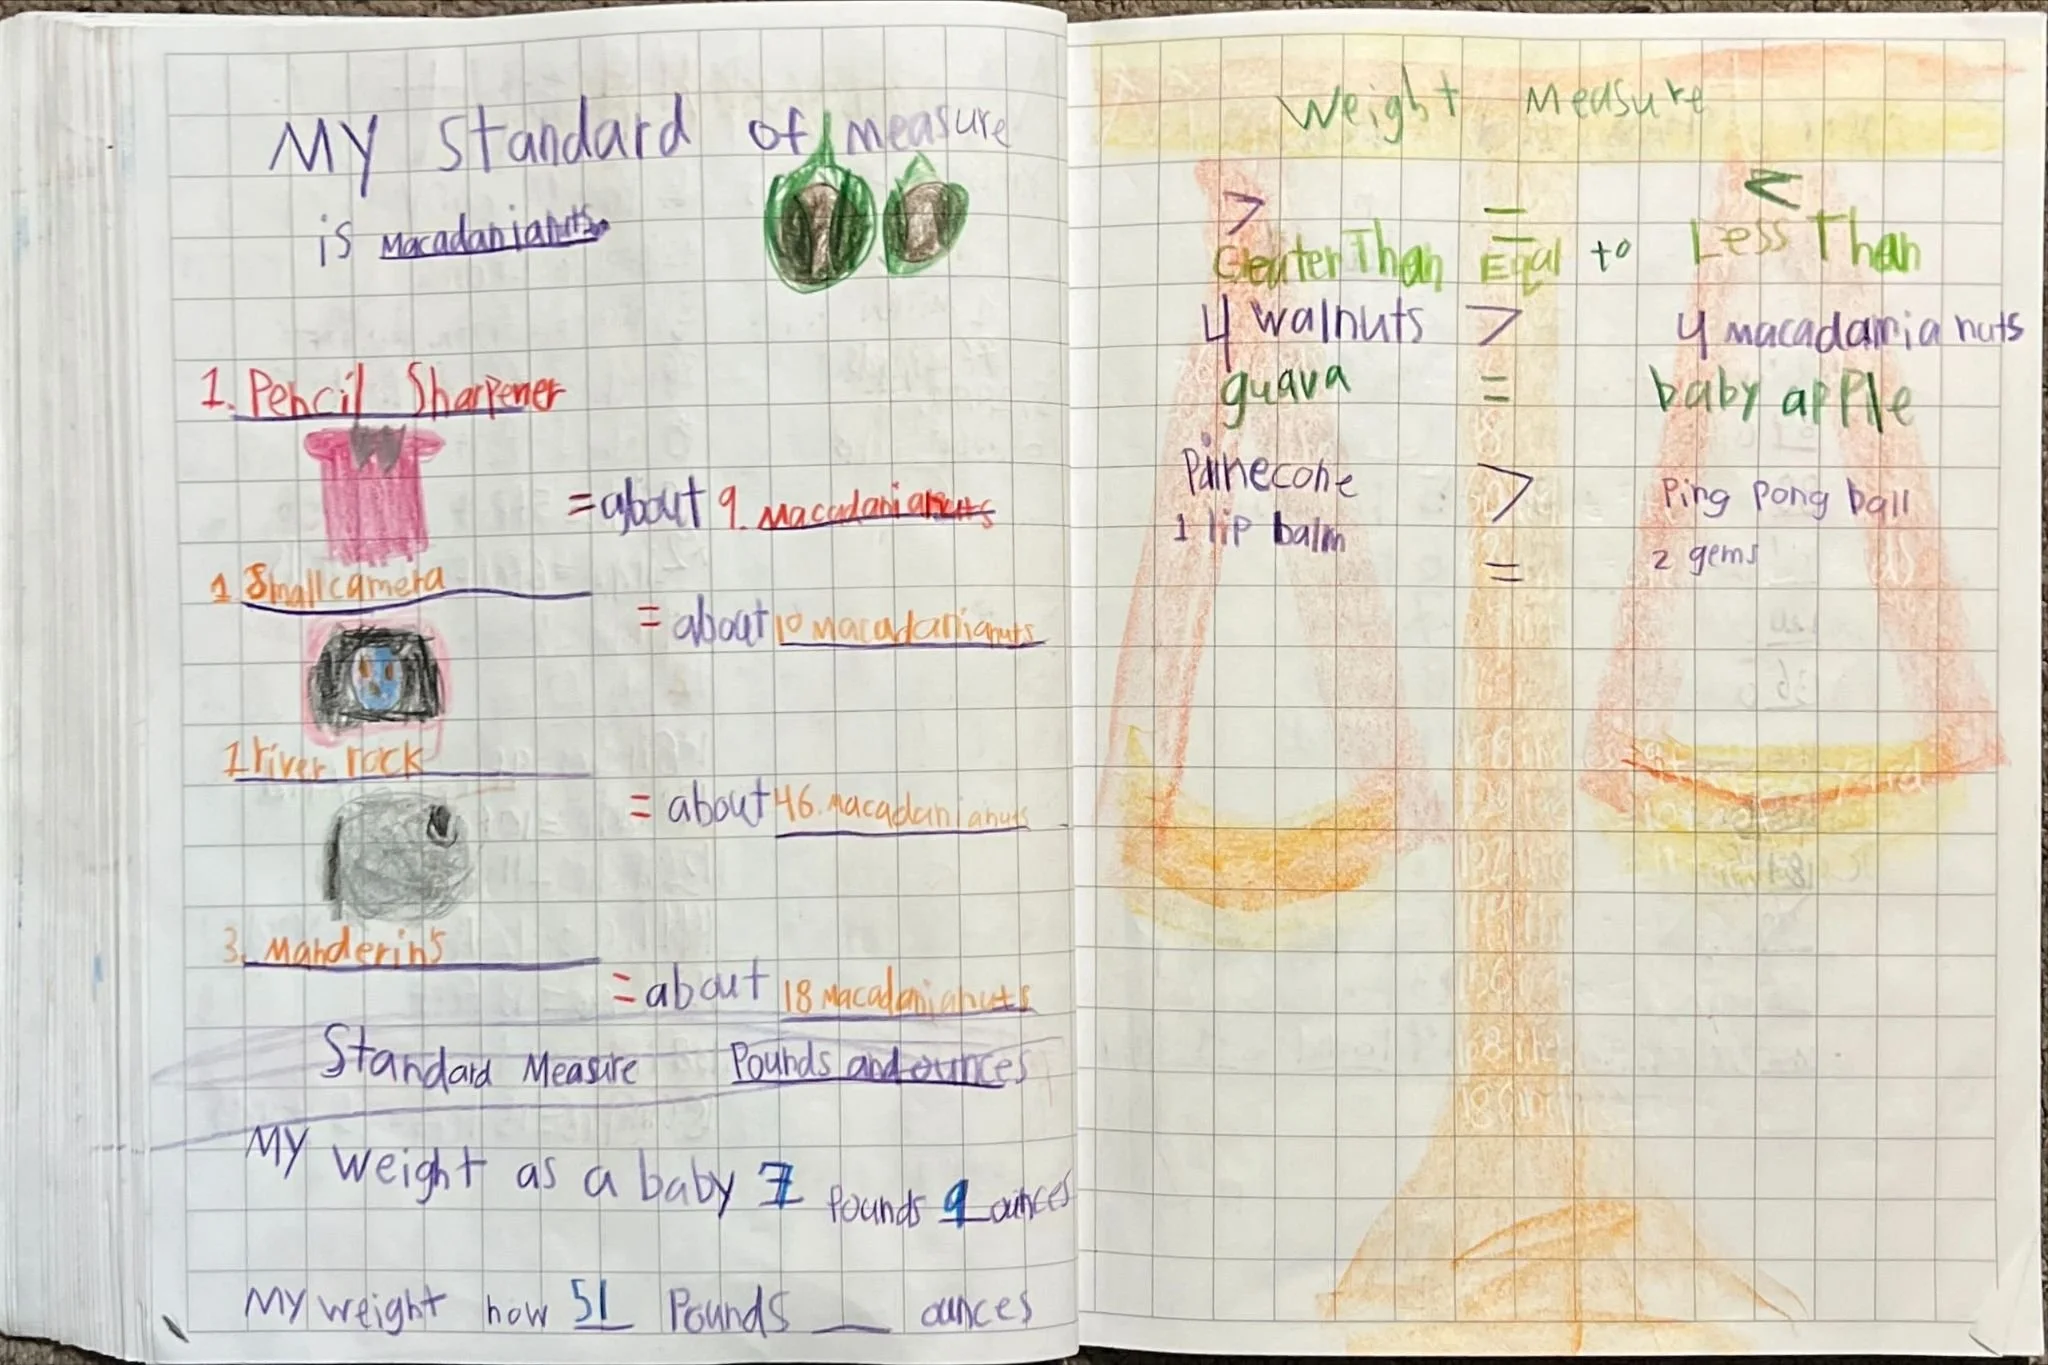 My Standard of measure
is Macadanianuts
1. Pencil Sharpener
= about 9. Macadanianuts
1 Small camera
= about 10 Macadanianuts
1 river rock
= about 46. Macadanianuts
3. Manderins
= about 18 Macadanianuts
Standard Measure Pounds and ounces
My weight as a baby 7 Pounds 9 ounces
My weight now 51 Pounds ___ ounces
Weight Measure
> = <
Greater Than Equal to Less Than
4 walnuts > 4 macadamia nuts
guava = baby apple
Painecone > Ping pong ball
1 lip balm = 2 gems